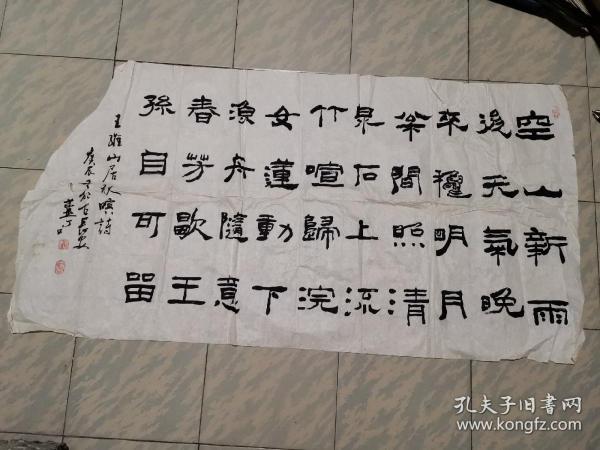 空山新雨
後天氣晚
來穐明月
枀間照清
泉石上流
竹喧歸浣
女蓮動下
漁舟隨意
春芳歇王
孫自可留
王維山居秋暝詩
庚辰於古長安
孔夫子旧书网
www.kongfz.com